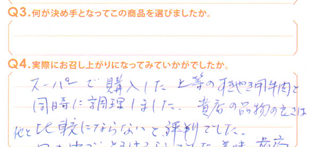 Q3.何が決め手となってこの商品を選びましたか。
Q4.実際にお召し上がりになってみていかがでしたか。
スーパーで購入した上等のすき焼き用牛肉と
同時に調理しました。貴店の品物の良さは
他と比較にならないと評判でした。